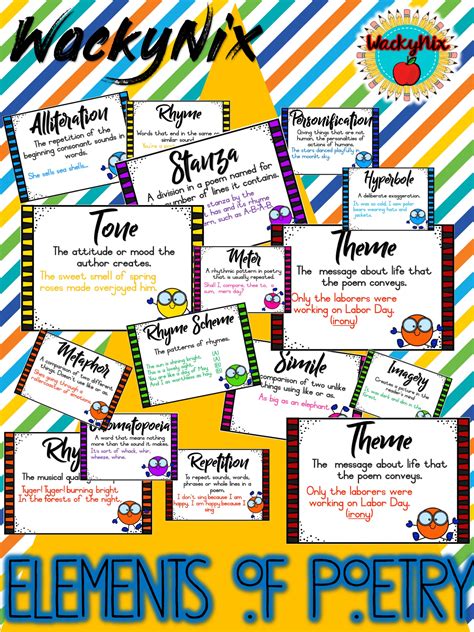 WackyNix
WackyNix
Alliteration
The repetition of the
beginning consonant sounds in
words.
She sells sea shells...
Rhyme
Words that end in the same or
similar sound.
Personification
Giving things that are not
human, the personalities of
actions of humans.
The stars danced playfully in
the moonlit sky.
Stanza
A division in a poem named for
number of lines it contains.
stanza by the
has and its rhyme
such as A-B-A-B
Hyperbole
A deliberate exaggeration.
It was so cold, I saw polar
bears wearing hats and
jackets.
Tone
The attitude or mood the
author creates.
The sweet smell of spring
roses made me overjoyed him.
Meter
A rhythmic pattern in poetry
that is usually repeated.
Shall I compare thee to a
sum mers day?
Theme
The message about life that
the poem conveys.
Only the laborers were
working on Labor Day.
(irony)
Rhyme Scheme
The patterns of rhymes.
The sun is shining bright
Metaphor
A comparison of two different
things. Doesn't use like or as.
rollercoaster of emotions.
Simile
comparison of two unlike
things using like or as.
As big as an elephant.
Imagery
Creates a picture in the
reader's mind
omatopoeia
A word that means nothing
more than the sound it makes.
It's sort of whack, whir,
wheeze, whine.
Rhy
The musical qua
Tyger! Tyger! burning bright
In the forests of the night.
Repetition
To repeat sounds, words,
phrases or whole lines in a
poem.
I don't sing because I am
happy. I am happy because I
sing.
Theme
The message about life that
the poem conveys.
Only the laborers were
working on Labor Day.
(irony)
ELEMENTS OF POETRY